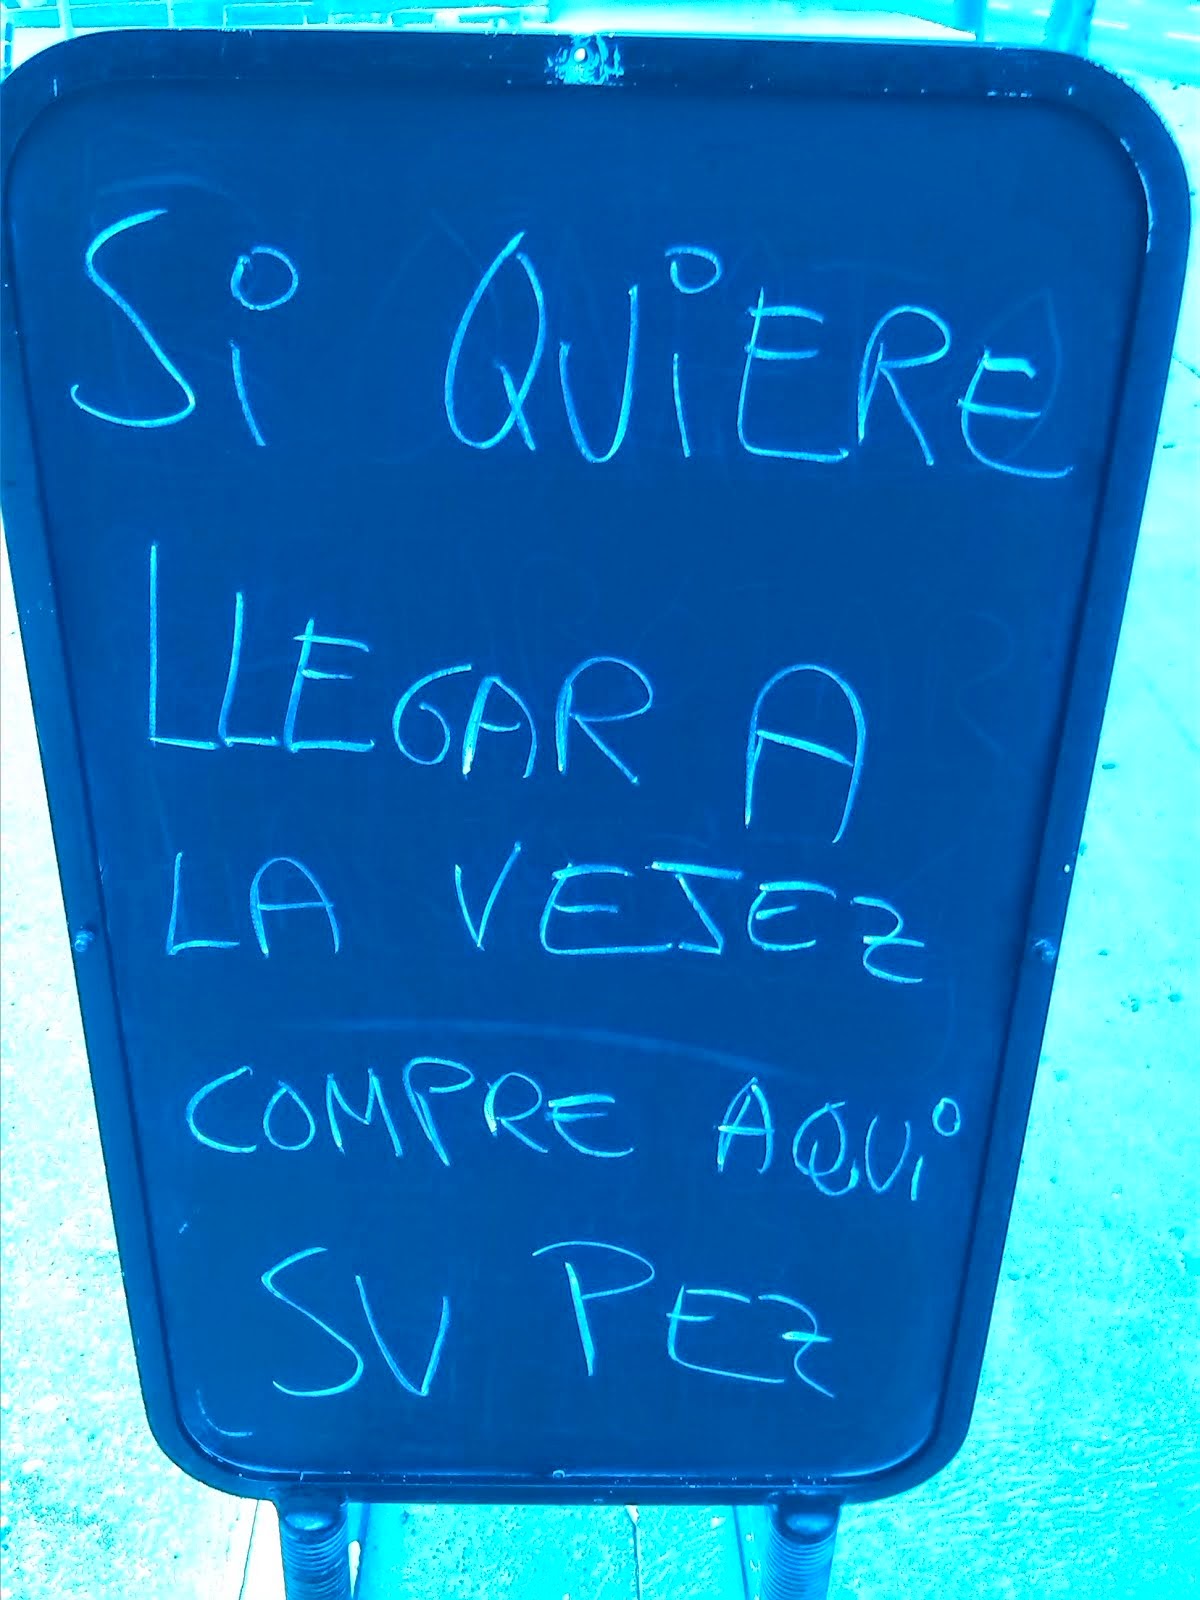 Si QUiERE
LLEGAR A
LA VEJEZ
COMPRE AQUi
SU PEZ